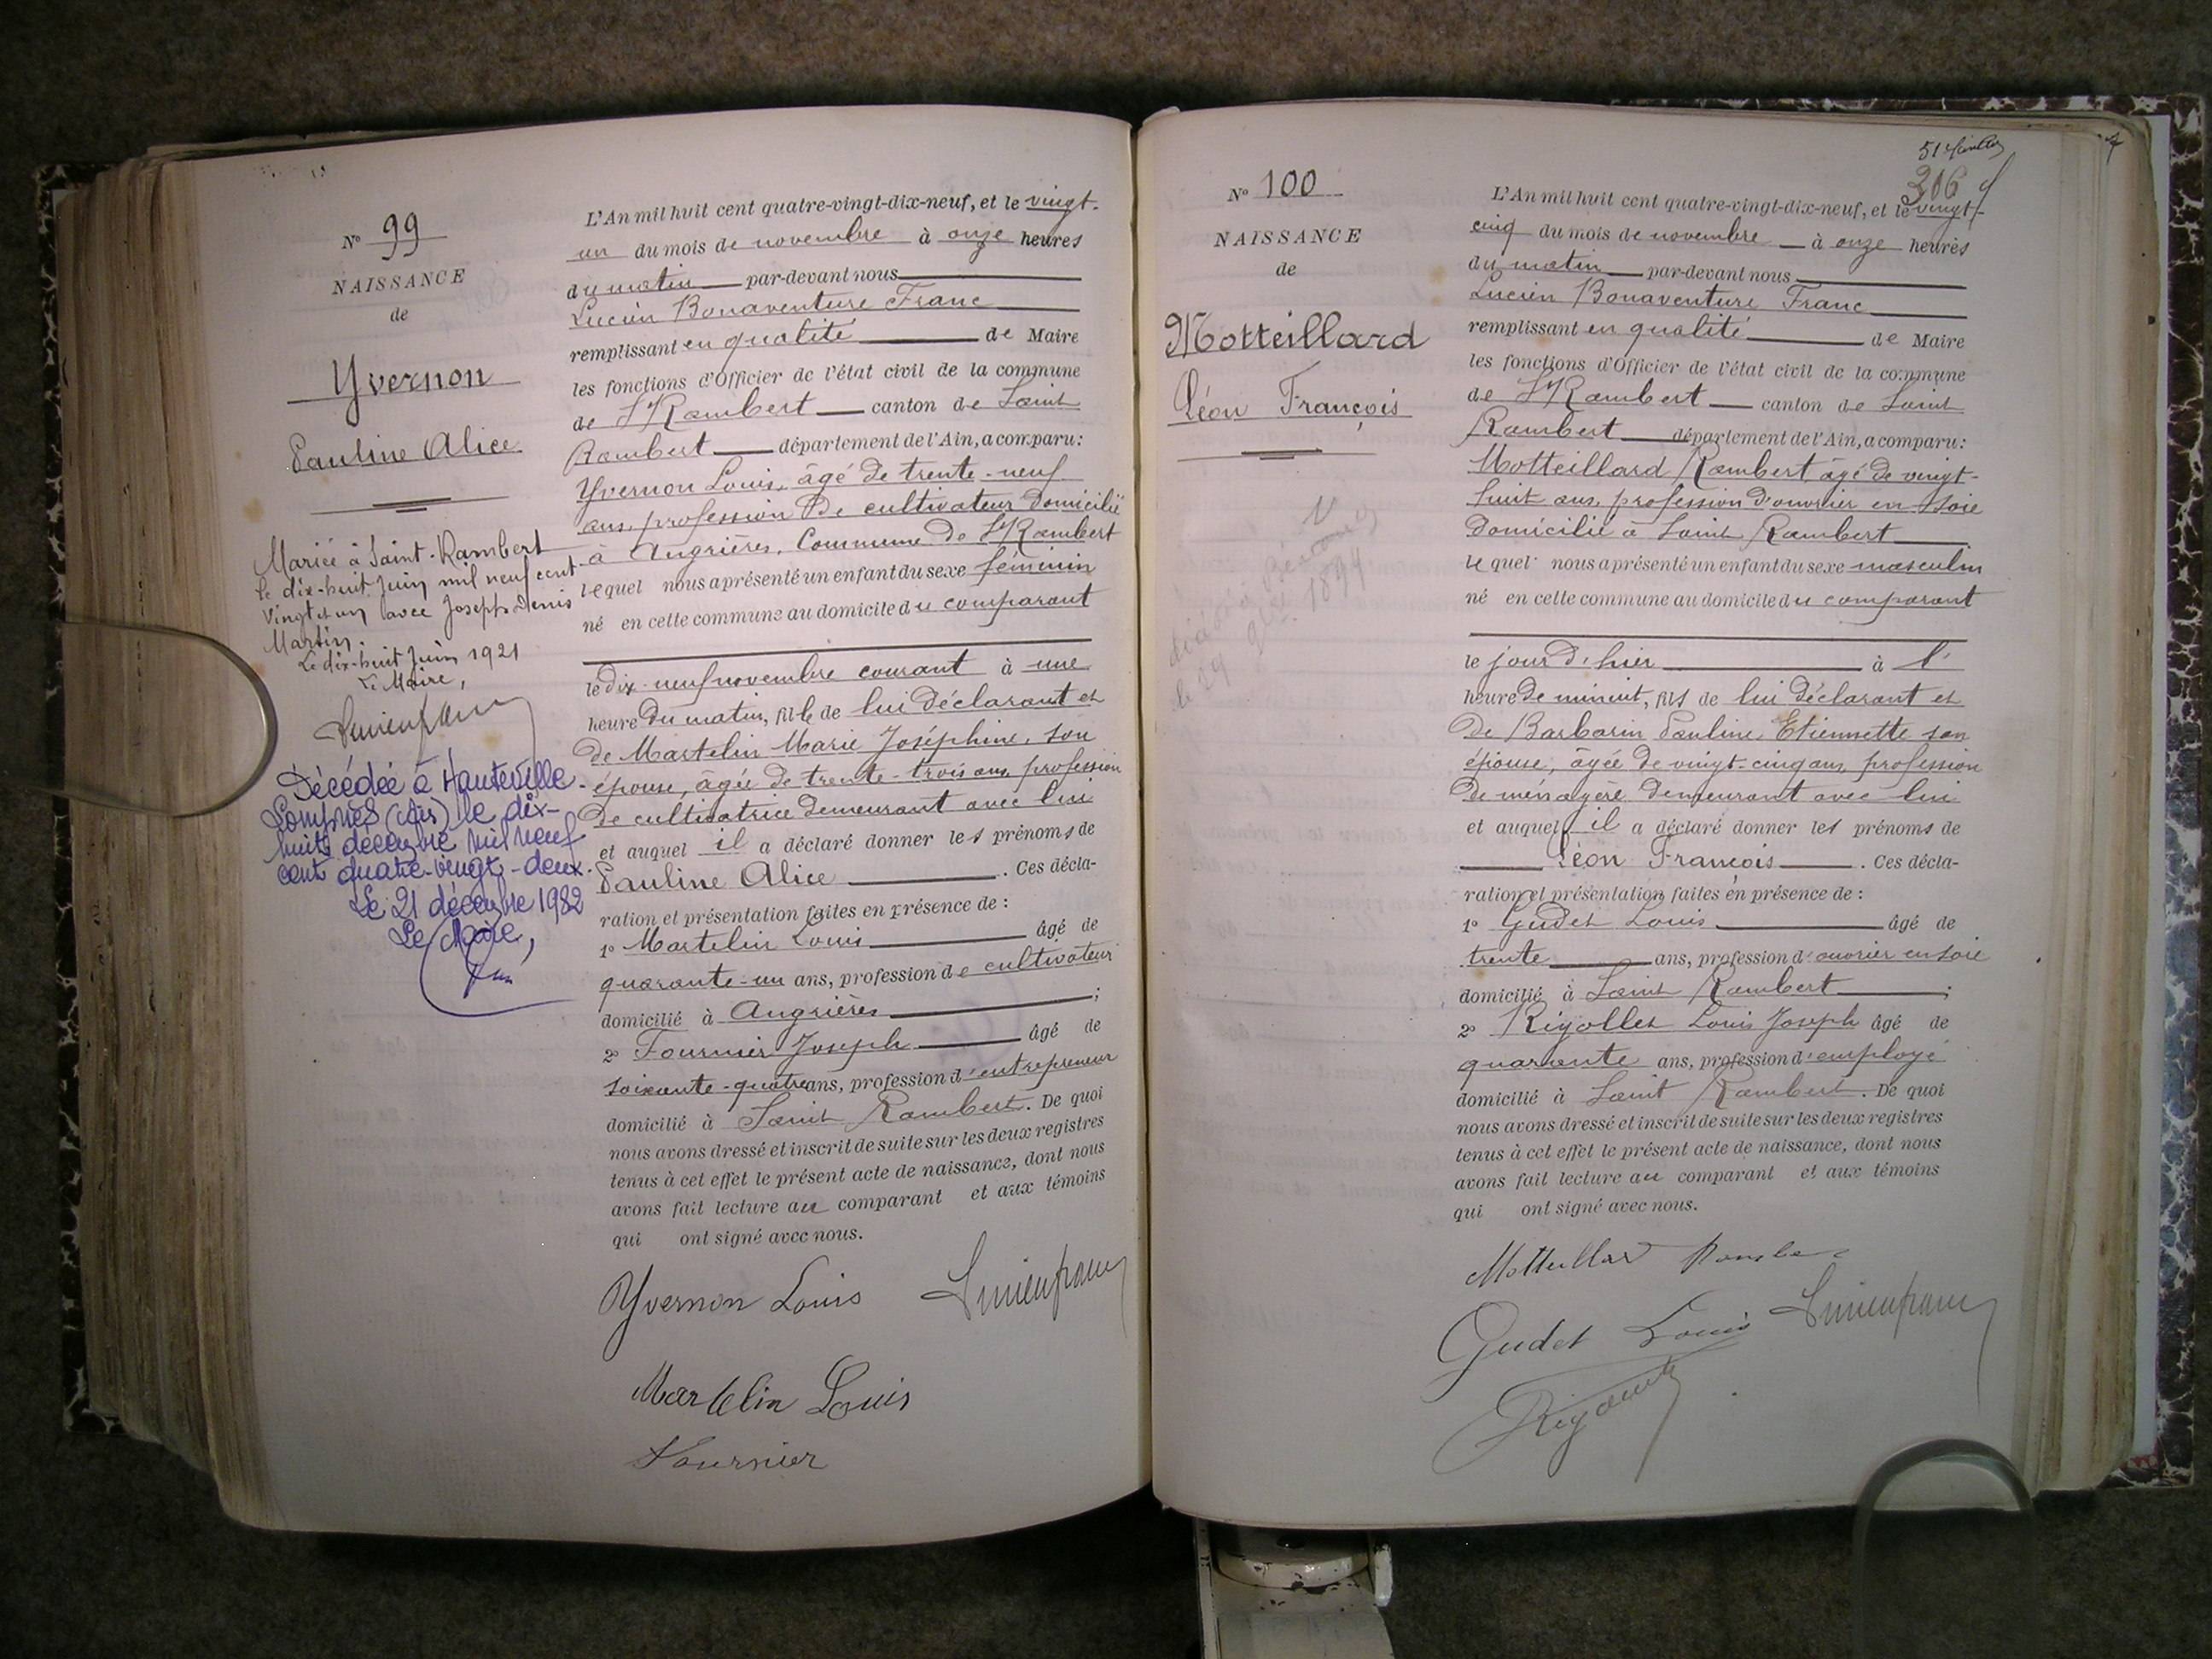 Nº 99
NAISSANCE
de
Yvernon
Pauline Alice
Mariée à Saint-Rambert
le dix-huit Juin mil neuf cent
vingt et un avec Joseph Denis
Martin.
Le dix-huit Juin 1921
Le Maire,
Lucien franc
Décédée à Hauteville-
Lompnes (Ain) le dix-
huit décembre mil neuf
cent quatre-vingt-deux.
Le 21 décembre 1982
Le Maire,
L'An mil huit cent quatre-vingt-dix-neuf, et le vingt-
un du mois de novembre à onze heures
du matin par-devant nous
Lucien Bonaventure Franc
remplissant en qualité de Maire
les fonctions d'Officier de l'état civil de la commune
de St Rambert canton de Saint
Rambert département de l'Ain, a comparu:
Yvernon Louis, âgé de trente-neuf
ans, profession de cultivateur domicilié
à Angrières, Commune de St Rambert
lequel nous a présenté un enfant du sexe féminin
né en cette commune au domicile du comparant
le dix-neuf novembre courant à une
heure du matin, fille de lui déclarant et
de Martelin Marie Joséphine, son
épouse, âgée de trente-trois ans, profession
de cultivatrice demeurant avec lui
et auquel il a déclaré donner les prénoms de
Pauline Alice . Ces décla-
ration et présentation faites en présence de :
1º Martelin Louis âgé de
quarante-un ans, profession de cultivateur
domicilié à Angrières ;
2º Fournier Joseph âgé de
soixante-quatre ans, profession d'entrepreneur
domicilié à Saint Rambert. De quoi
nous avons dressé et inscrit de suite sur les deux registres
tenus à cet effet le présent acte de naissance, dont nous
avons fait lecture au comparant et aux témoins
qui ont signé avec nous.
Yvernon Louis Lucien franc
Martelin Louis
Fournier
51
306
Nº 100
NAISSANCE
de
Motteillard
Léon François
décédé à
le 29 9bre 1899
L'An mil huit cent quatre-vingt-dix-neuf, et le vingt-
cinq du mois de novembre à onze heures
du matin par-devant nous
Lucien Bonaventure Franc
remplissant en qualité de Maire
les fonctions d'Officier de l'état civil de la commune
de St Rambert canton de Saint
Rambert département de l'Ain, a comparu:
Motteillard Rambert, âgé de vingt-
huit ans, profession d'ouvrier en soie
domicilié à Saint Rambert
lequel nous a présenté un enfant du sexe masculin
né en cette commune au domicile du comparant
le jour d'hier à l'
heure de minuit, fils de lui déclarant et
de Barbarin Pauline Etiennette son
épouse, âgée de vingt-cinq ans, profession
de ménagère demeurant avec lui
et auquel il a déclaré donner les prénoms de
Léon François . Ces décla-
ration et présentation faites en présence de :
1º Gudet Louis âgé de
trente ans, profession d'ouvrier en soie
domicilié à Saint Rambert ;
2º Rigollet Louis Joseph âgé de
quarante ans, profession d'employé
domicilié à Saint Rambert. De quoi
nous avons dressé et inscrit de suite sur les deux registres
tenus à cet effet le présent acte de naissance, dont nous
avons fait lecture au comparant et aux témoins
qui ont signé avec nous.
Gudet Louis Lucien franc